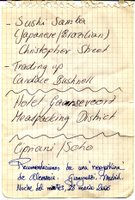 - Sushi Samba
(Japanese/Brazilian)
Christopher Street
- Trading up
Candace Bushnell
Hotel Gansevoort
Meatpacking District
Cipriani/Soho
Recomendaciones de una neoyorkina
de Alemania. Aeropuerto. Madrid.
Noche del martes, 28 marzo 2006